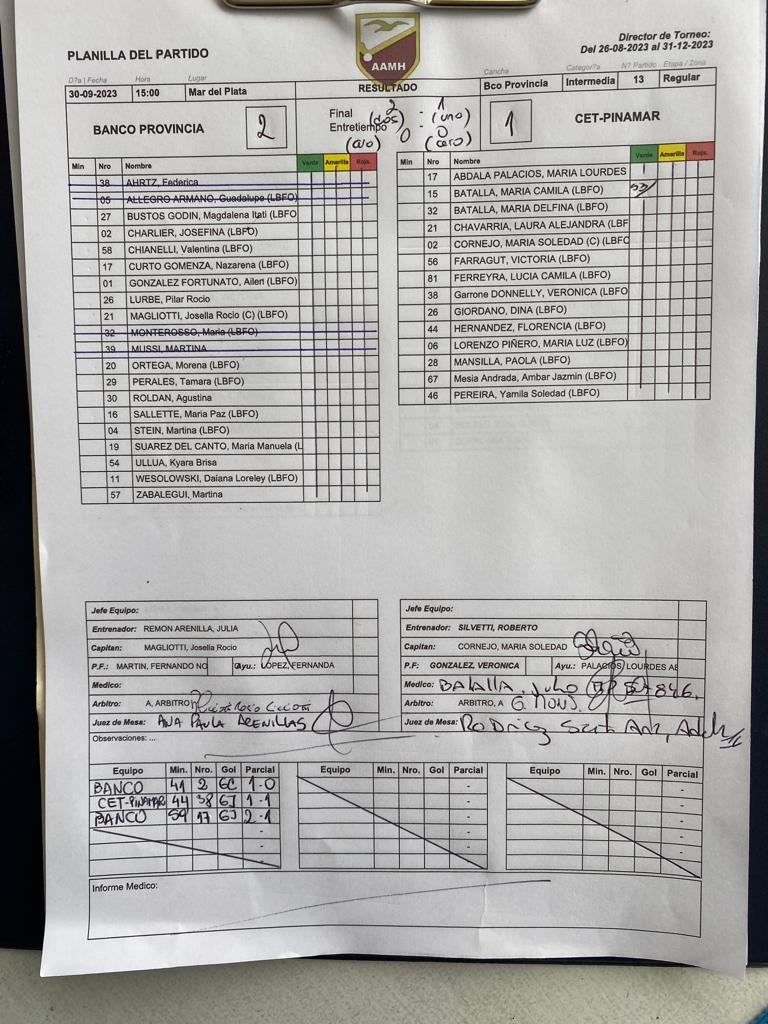 AAMH
PLANILLA DEL PARTIDO
Director de Torneo:
Del 26-08-2023 al 31-12-2023
D?a | Fecha Hora Lugar Cancha Categor?a N? Partido Etapa / Zona
30-09-2023 15:00 Mar del Plata RESULTADO Bco Provincia Intermedia 13 Regular
BANCO PROVINCIA 2 Final 2 - 1 1 CET-PINAMAR
(dos) (uno)
Entretiempo 0 - 0
(cero)
Min Nro Nombre Verde Amarilla Roja
38 AHRTZ, Federica
05 ALLEGRO ARMANO, Guadalupe (LBFO)
27 BUSTOS GODIN, Magdalena Itati (LBFO
02 CHARLIER, JOSEFINA (LBFO)
58 CHIANELLI, Valentina (LBFO)
17 CURTO GOMENZA, Nazarena (LBFO)
01 GONZALEZ FORTUNATO, Ailen (LBFO)
26 LURBE, Pilar Rocio
21 MAGLIOTTI, Josella Rocio (C) (LBFO)
32 MONTEROSSO, Maria (LBFO)
39 MUSSI, MARTINA
20 ORTEGA, Morena (LBFO)
29 PERALES, Tamara (LBFO)
30 ROLDAN, Agustina
16 SALLETTE, Maria Paz (LBFO)
04 STEIN, Martina (LBFO)
19 SUAREZ DEL CANTO, Maria Manuela (L
54 ULLUA, Kyara Brisa
11 WESOLOWSKI, Daiana Loreley (LBFO)
57 ZABALEGUI, Martina
Min Nro Nombre Verde Amarilla Roja.
17 ABDALA PALACIOS, MARIA LOURDES
15 BATALLA, MARIA CAMILA (LBFO)
32 BATALLA, MARIA DELFINA (LBFO)
21 CHAVARRIA, LAURA ALEJANDRA (LBF
02 CORNEJO, MARIA SOLEDAD (C) (LBFO
56 FARRAGUT, VICTORIA (LBFO)
81 FERREYRA, LUCIA CAMILA (LBFO)
38 Garrone DONNELLY, VERONICA (LBFO
26 GIORDANO, DINA (LBFO)
44 HERNANDEZ, FLORENCIA (LBFO)
06 LORENZO PIÑERO, MARIA LUZ (LBFO)
28 MANSILLA, PAOLA (LBFO)
67 Mesia Andrada, Ambar Jazmin (LBFO)
46 PEREIRA, Yamila Soledad (LBFO)
Jefe Equipo:
Entrenador: REMON ARENILLA, JULIA
Capitan: MAGLIOTTI, Josella Rocio
P.F.: MARTIN, FERNANDO NO Ayu.: LOPEZ, FERNANDA
Medico:
Arbitro: A, ARBITRO
Juez de Mesa: ANA PAULA ARENILLAS
Observaciones: ...
Jefe Equipo:
Entrenador: SILVETTI, ROBERTO
Capitan: CORNEJO, MARIA SOLEDAD
P.F: GONZALEZ, VERONICA Ayu.: PALACIOS, LOURDES AB
Medico: BATALLA, Julio
Arbitro: ARBITRO, A
Juez de Mesa:
Equipo Min. Nro. Gol Parcial
BANCO 41 2 GC 1-0
CET-PINAMAR 44 38 GJ 1-1
BANCO 59 17 GJ 2-1
Equipo Min. Nro. Gol Parcial
Equipo Min. Nro. Gol Parcial
Informe Medico: